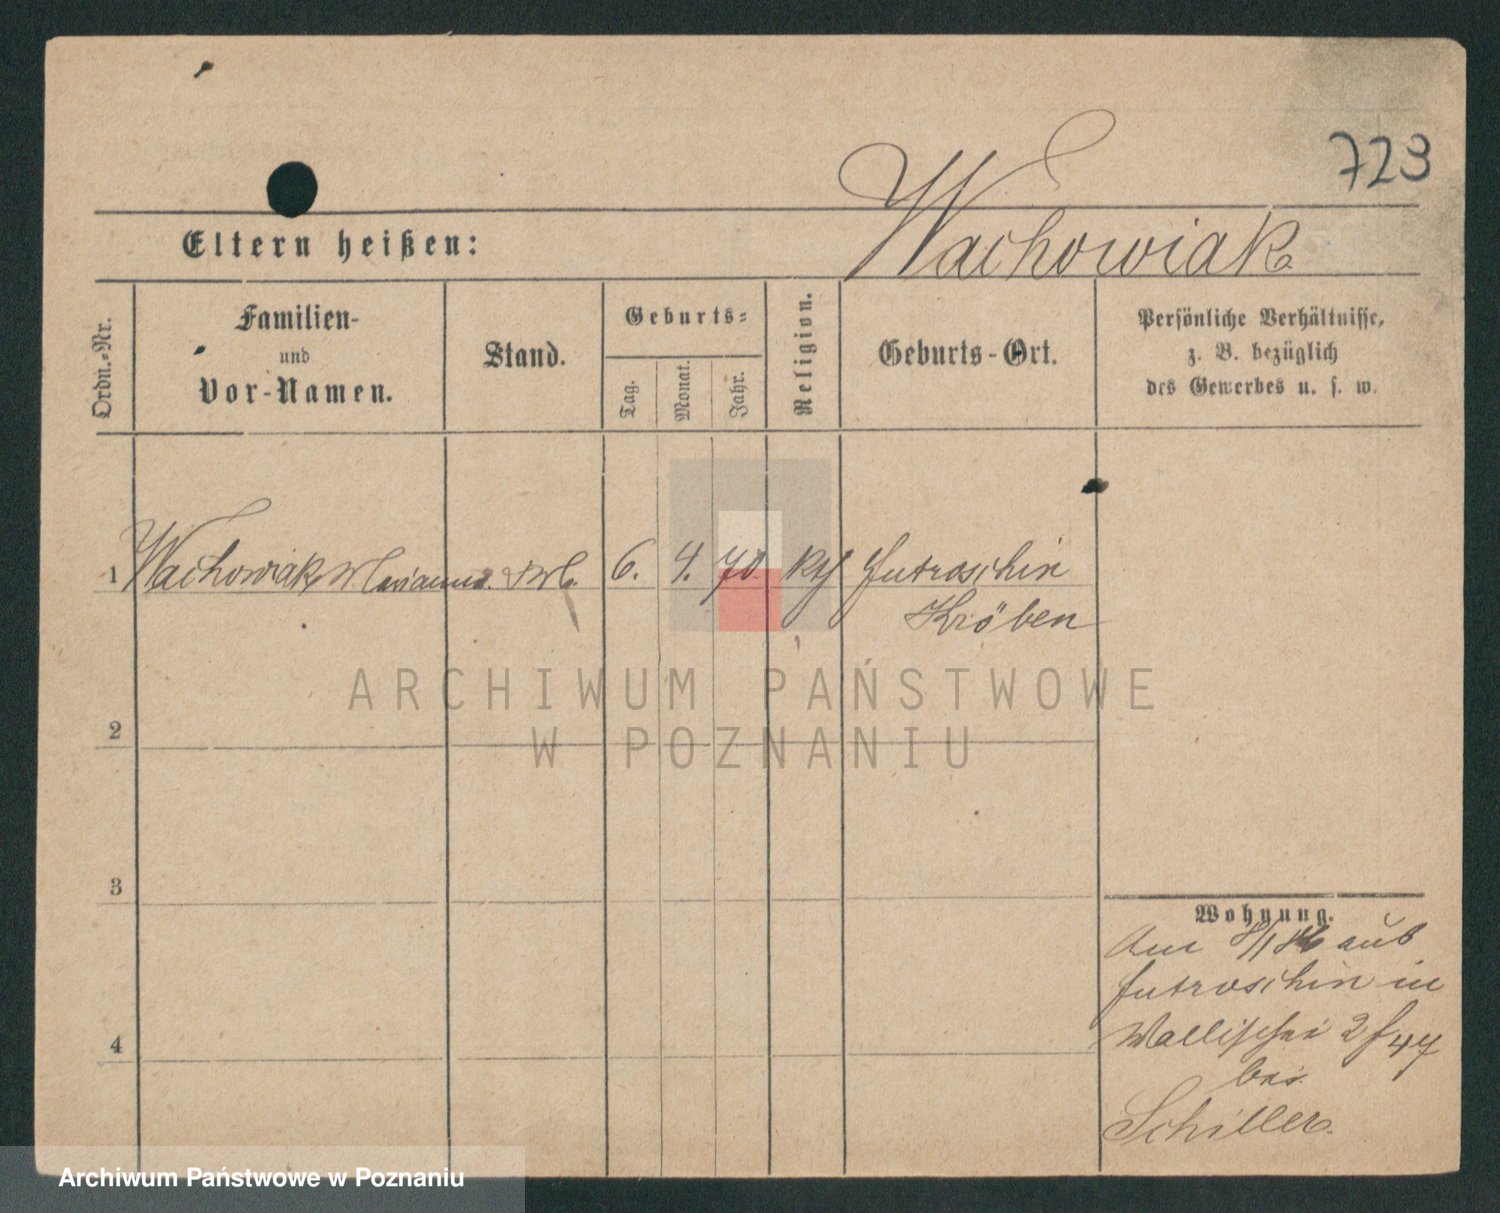 723
Wachowiak
Eltern heißen:
Ordn.-Nr.
Familien-
und
Vor-Namen.
Stand.
Geburts-
Tag.
Monat.
Jahr.
Religion.
Geburts-Ort.
Persönliche Verhältnisse,
z. B. bezüglich
des Gewerbes u. s. w.
1 Wachowiak Marianna. 6. 4. 70. kth Jutroschin
Kröben
2
3
4
Wohnung.
Am aus
Jutroschin in
Wallischei 2 47
bei
Schiller.
ARCHIWUM PAŃSTWOWE
W POZNANIU
Archiwum Państwowe w Poznaniu